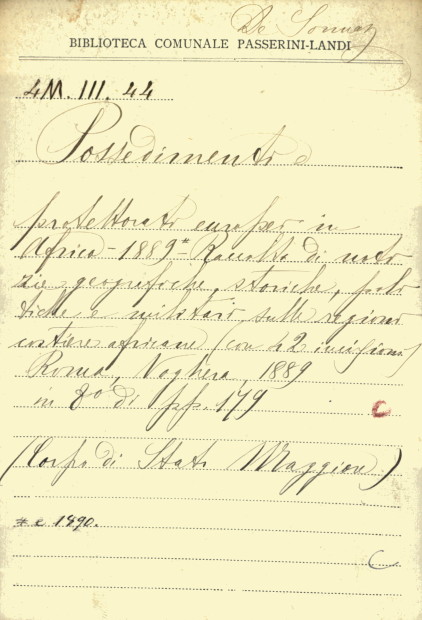 De Sonnaz
BIBLIOTECA COMUNALE PASSERINI-LANDI
4M. III. 44
Possedimenti e
protettorati europei in
Africa - 1889* Raccolta di noti
zie geografiche, storiche, poli
tiche e militari sulle regioni
costiere africane (con 12 incisioni)
Roma, Voghera, 1889
in 8º di pp. 179
C
(Corpo di Stato Maggiore)
* e 1890.
C